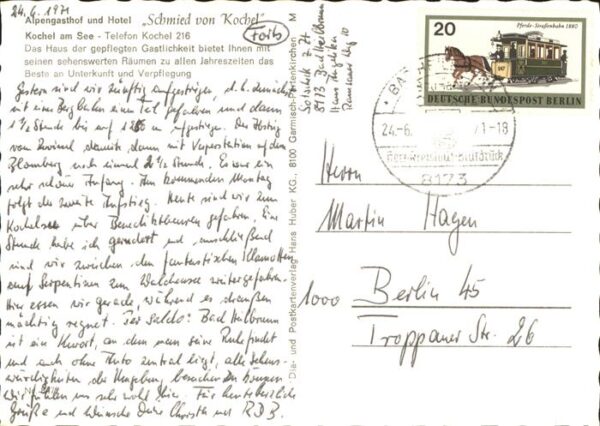 24.6.1971
Alpengasthof und Hotel „Schmied von Kochel"
Kochel am See - Telefon Kochel 216
Das Haus der gepflegten Gastlichkeit bietet Ihnen mit
seinen sehenswerten Räumen zu allen Jahreszeiten das
Beste an Unterkunft und Verpflegung
Gestern sind wir zünftig aufgestiegen, d.h. zunächst
mit einer Bergbahn ein Teil gefahren und dann
1½ Stunde bis auf 1250 m aufgestiegen. Der Abstieg
von Zwiesel mit Vesperstation auf dem
Blomberg noch einmal 2½ Stunde. Es war ein
sehr schöner Anfang. Am kommenden Montag
folgt der zweite Aufstieg. Heute sind wir zum
Kochelsee über Benediktbeuren gefahren. Eine
Stunde habe ich gerudert und anschließend
sind wir zwischen den fantastischen
auf Serpentinen zum Walchensee weitergefahren.
Hier essen wir gerade, während es draußen
mächtig regnet. Per Saldo: Bad Heilbrunn
ist ein Kurort, an dem man seine Ruhe findet
und auch ohne Auto zentral liegt, alle Sehens-
würdigkeiten der Umgebung besuchen zu können.
Wir fühlen uns sehr wohl hier. Für heute herzliche
Grüße und Wünsche Deine Christa und R.D.B.
"Dia- und Postkartenverlag Hans Huber KG., 8100 Garmisch-Partenkirchen M
z. Zt.
8173 Bad Heilbrunn
Haus
10
20
Pferde-Straßenbahn 1880
DEUTSCHE BUNDESPOST BERLIN
24.-6. 71-18
8173
Herrn
Martin Hagen
1000 Berlin 45
Troppauer Str. 26